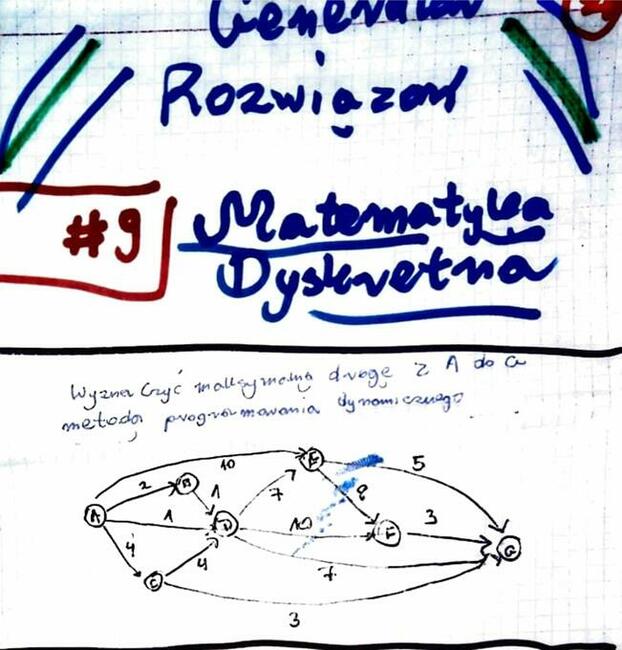 Generator
Rozwiązań
#9
Matematyka
Dyskretna
Wyznaczyć maksymalną drogę z A do G
metodą programowania dynamicznego
10
E
5
2
B
1
7
8
A
1
D
10
F
3
G
4
C
4
7
3